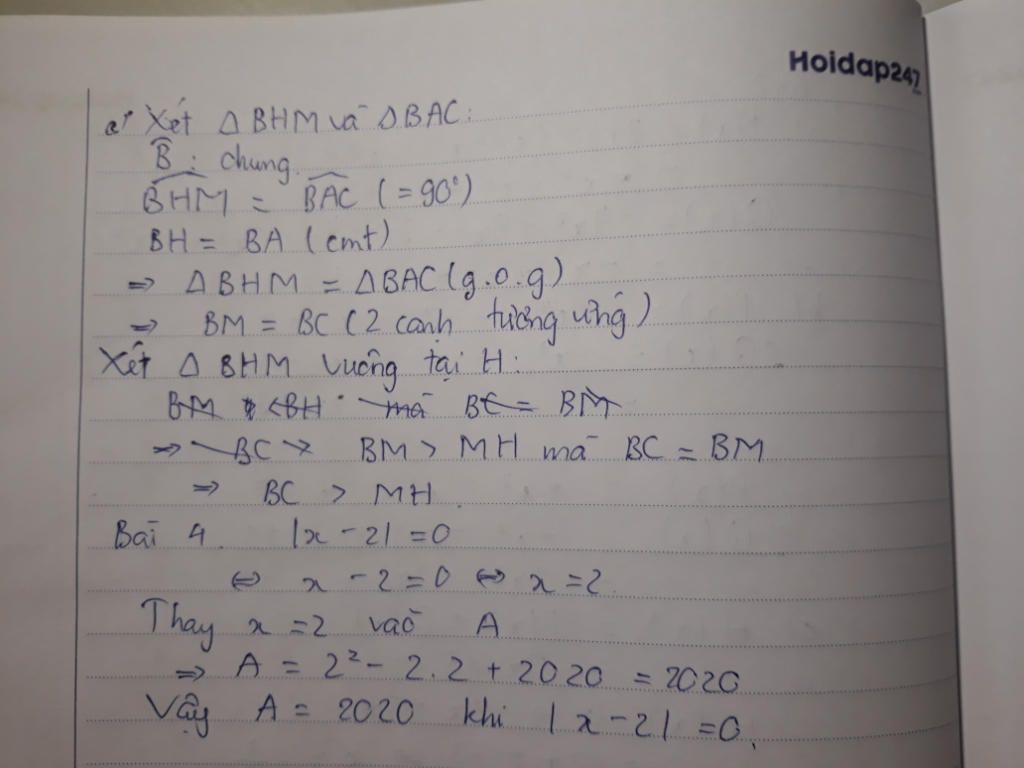 Hoidap247
c, Xét Δ BHM và Δ BAC:
B̂ : chung.
BHM = BAC (= 90°)
BH = BA (cmt)
=> Δ BHM = Δ BAC (g.c.g)
=> BM = BC (2 cạnh tương ứng)
Xét Δ BHM vuông tại H:
BM < BH mà BC = BM
=> BC > BM > MH mà BC = BM
=> BC > MH.
Bài 4. |x - 2| = 0
<=> x - 2 = 0 <=> x = 2.
Thay x = 2 vào A
=> A = 2² - 2.2 + 2020 = 2020
Vậy A = 2020 khi |x - 2| = 0.